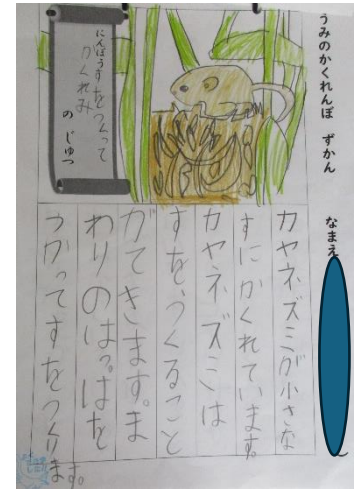 うみのかくれんぼ ずかん なまえ
にんぽう
すをつくって
かくれみ
のじゅつ
カヤネズミが小さな
すにかくれています。
カヤネズミは
すを、つくること
ができます。ま
わりのはっぱを
つかってすをつくり
ます。